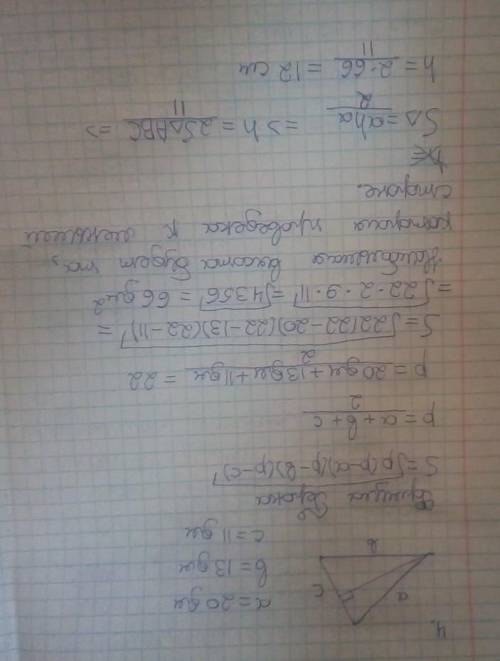 4.
a = 20 дм
b = 13 дм
c = 11 дм
a
b
c
Формула Герона
S = √p(p-a)(p-b)(p-c)
p = a + b + c / 2
p = 20 дм + 13 дм + 11 дм / 2 = 22
S = √22(22-20)(22-13)(22-11) =
= √22·2·9·11 = √4356 = 66 дм²
Наибольшая высота будет та,
которая проведена к меньшей
стороне.
S△ = aha / 2 => h = 2S△ABC / 11 =>
h = 2·66 / 11 = 12 см